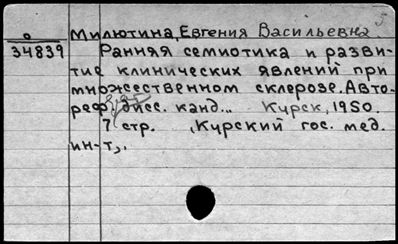 о Милютина, Евгения Васильевна
34839 Ранняя семиотика и разви-
тие клинических явлений при
множественном склерозе. Авто-
реф. дисс. канд... Курск, 1950.
7 стр. (Курский гос. мед.
ин-т).